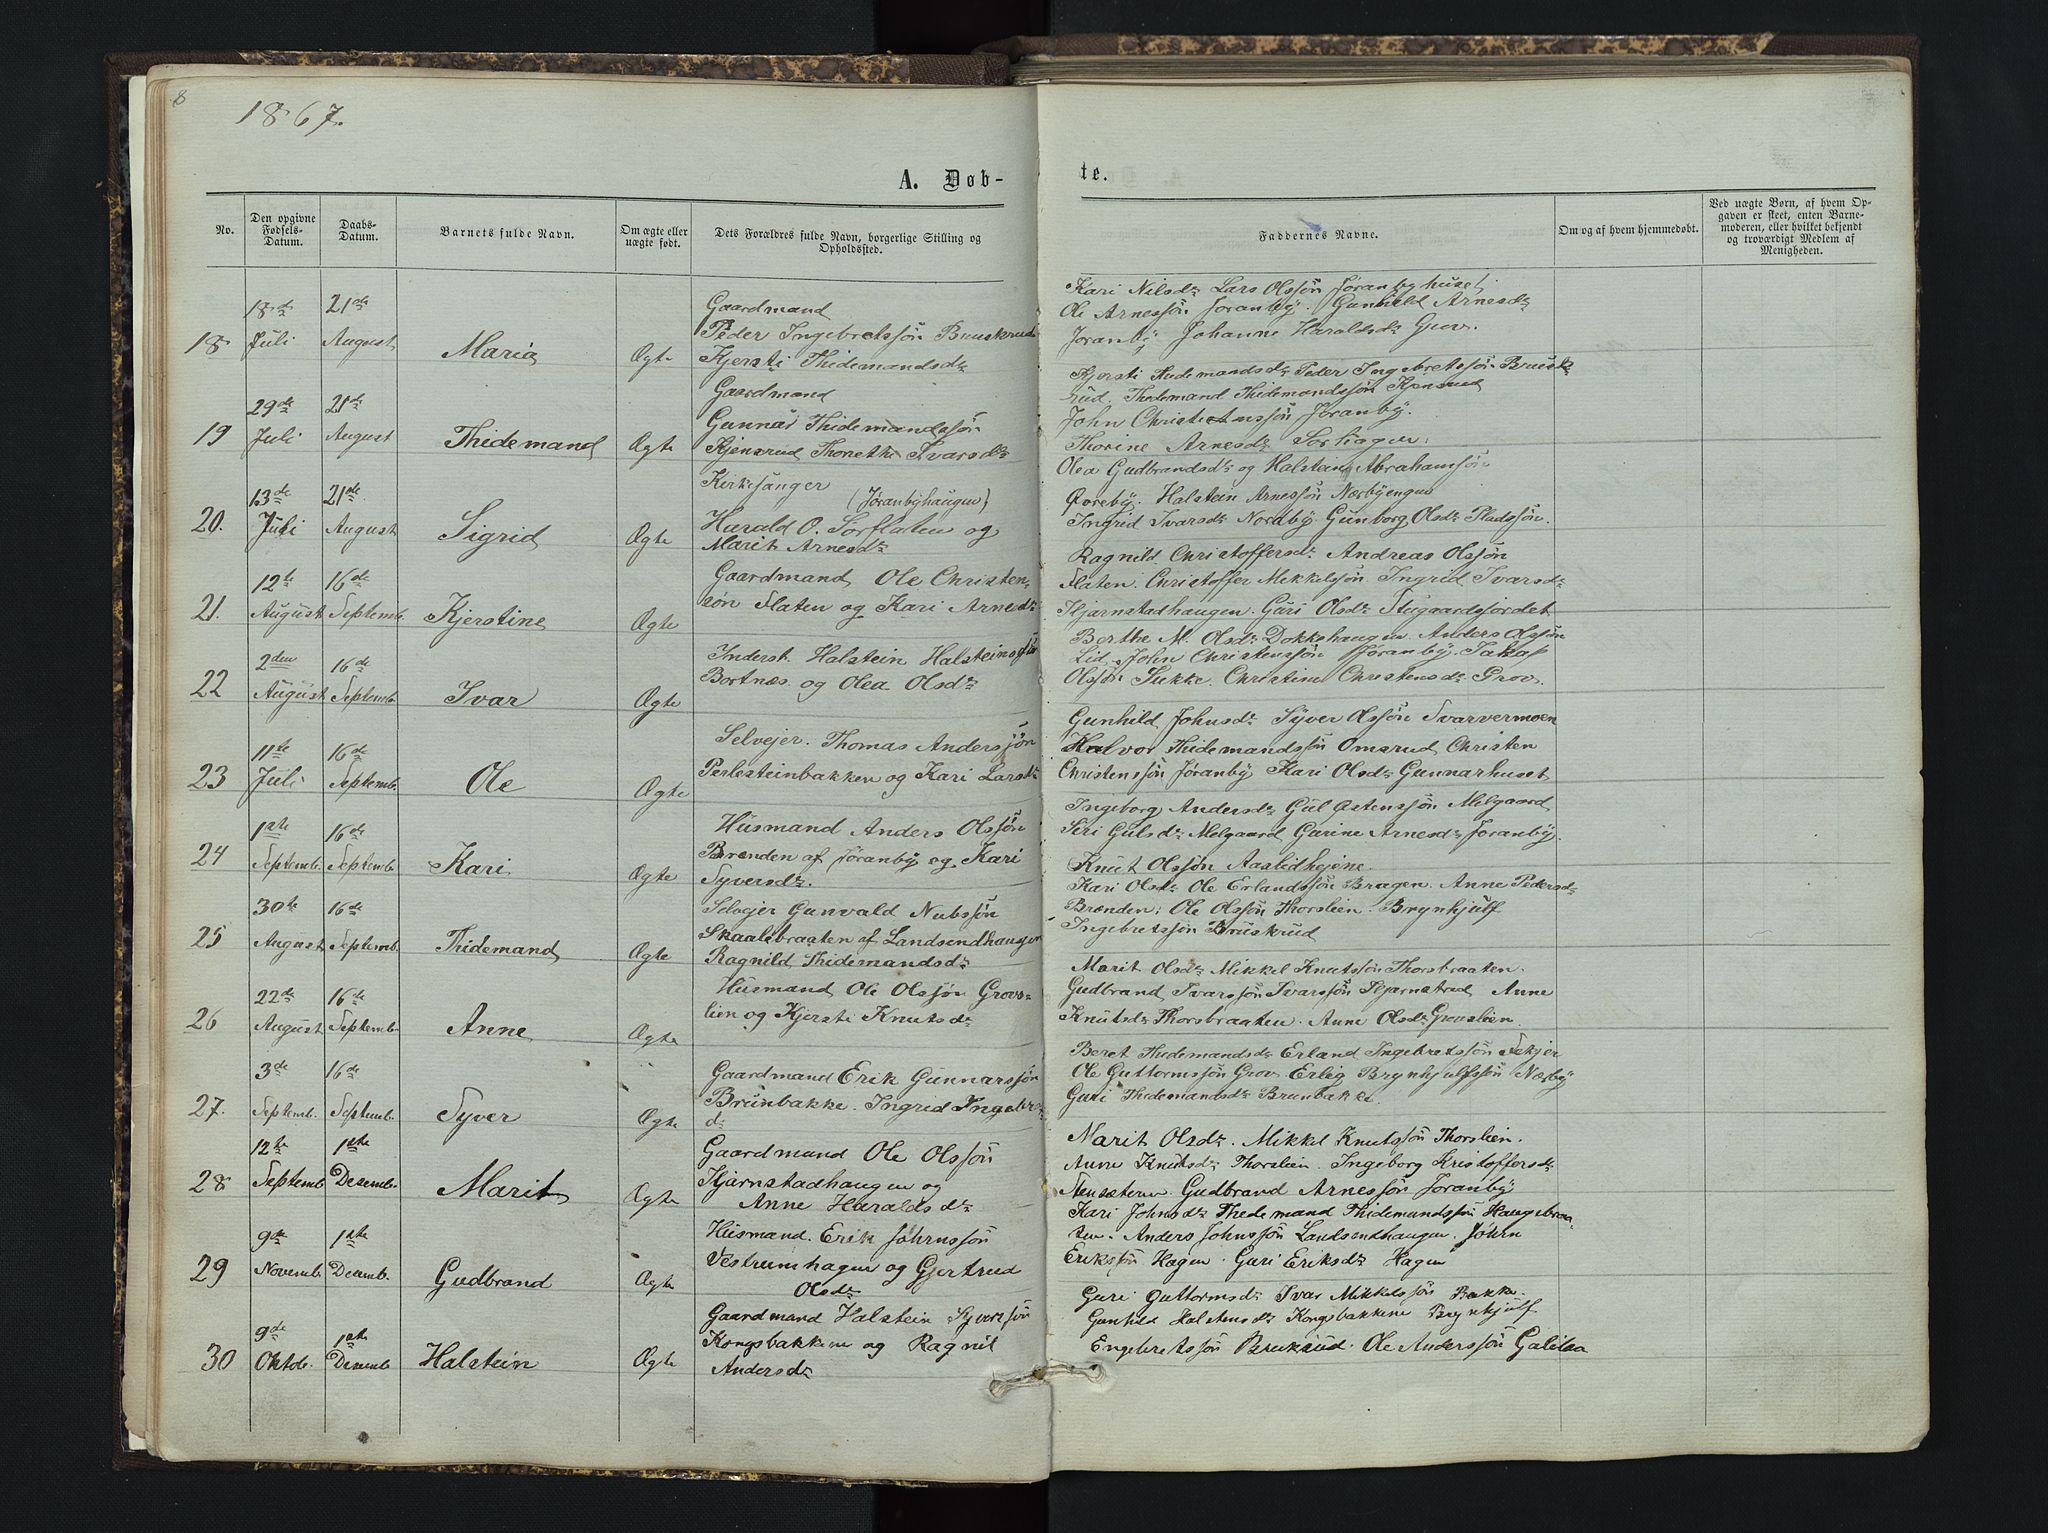 8
1867.
A. Døb-
te.
No.
Den opgivne Fødsels-Datum.
Daabs-Datum.
Barnets fulde Navn.
Om ægte eller uægte født.
Dets Forældres fulde Navn, borgerlige Stilling og Opholdssted.
Faddernes Navne.
Om og af hvem hjemmedøbt.
Ved uægte Børn, af hvem Op-
gaven er skeet, enten Barne-
moderen, eller hvilket bekjendt
og troværdigt Medlem af
Menigheden.
18
18de Juli
21de August
Maria
Ægte
Gaardmand
Peder Ingebretssøn Bruskrud
Kjersti Thidemandsdr
Kari Nilsdr Lars Olssøn Jøranbyhuset
Ole Arnessøn Jøranby. Gunhild Arnesdr
Jøranby Johanne Haraldsdr Grov.
19
29de Juli
21de August
Thidemand
Ægte
Gaardmand
Gunnar Thidemandssøn
Kjensrud Thonette Ivarsdr
Kjersti Thidemandsdr Peder Ingebretssøn Brusk-
rud. Thidemand Thidemandssøn Kjensrud
John Christenssøn Jøranby.
Thorine Arnesdr Sorhagen.
20.
13de Juli
21de August
Sigrid
Ægte
Kirkesanger
(Jøranbyhaugen)
Harald O. Sørflaten og
Marit Arnesdr
Olea Gudbrandsdr og Halstein Abrahamsøn
Øvreby. Halstein Arnessøn Næsbyengen
Ingrid Ivarsdr Nordby. Gunborg Olsdr Pladssøn.
21.
12te August
16de Septemb.
Kjerstine
Ægte
Gaardmand Ole Christen-
søn Flaten og Kari Arnesdr
Ragnild Christoffersdr Andreas Olssøn
Flaten. Christoffer Mikkelsøn Ingrid Ivarsdr
Hjarnstadhaugen. Guri Olsdr Stugaardsjordet
22
2den August
16de Septemb.
Ivar
Ægte
Inderst. Halstein Halsteinssøn
Bortnæs og Olea Olsdr
Berthe M. Olsdr Dokkehaugen. Anders Olssøn
Lid. John Christenssøn Jøranby. Jakop
Olssøn Sukke. Christine Christensdr Grov.
23
11te Juli
16de Septemb.
Ole
Ægte
Selvejer. Thomas Anderssøn
Perlesteinbakken og Kari Larsdr
Gunhild Johnsdr Syver Olssøn Svarvermoen
Halvor Thidemandssøn Omsrud Christen
Christenssøn Jøranby Kari Olsdr Gunnarhuset
24
1ste Septemb.
16de Septemb.
Kari
Ægte
Husmand Anders Olssøn
Brænden af Jøranby og Kari
Syversdr.
Ingeborg Andersdr Gul Østenssøn Melgaard
Siri Gulsdr Melgaard Garine Arnesdr Jøranby.
Knut Olssøn Aaslidhejene.
25
30te August
16de Septemb.
Thidemand
Ægte
Selvejer Gunvald Nubsøn
Skaalsbraaten af Landsendhaugen
Ragnild Thidemandsdr
Kari Olsdr Ole Erlandssøn Bragen. Anne Pedersdr
Brænden. Ole Olssøn Thorslien. Brynhjulf
Ingebretssøn Bruskrud
26
22de August
16de Septemb.
Anne
Ægte
Husmand Ole Olssøn Grovs-
lien og Kjersti Knutsdr
Marit Olsdr Mikkel Knutssøn Thorsbraaten.
Gudbrand Ivarssøn Ivarssøn Hjarnstad Anne
Knutsdr Thorsbraaten. Anne Olsdr Grovslien.
27.
3de Septemb.
16de Septemb.
Syver
Ægte
Gaardmand Erik Gunnarssøn
Brunbakke. Ingrid Ingebr
dr
Beret Thidemandsdr Erland Ingebretssøn
Ole Guttormssøn Grov. Erlig Brynhjulfssøn Næsby
Guri Thidemandsdr Brunbakke.
28
12te Septemb
1ste Desemb.
Marit
Ægte
Gaardmand Ole Olssøn
Hjarnstadhaugen og
Anne Haraldsdr
Marit Olsdr. Mikkel Knutssøn Thorslien.
Anne Knutsdr Thorslien. Ingeborg Kristoffersdr
Stensæteren. Gudbrand Arnessøn Jøranby
29
9de Novemb.
1ste Decemb.
Gudbrand
Ægte
Husmand. Erik Johnssøn
Vestrumhagen og Gjertrud
Olsdr
Kari Johnsdr Thidemand Thidemandssøn Haugebraa-
ten. Anders Johnssøn Landsendhaugen. John
Erikssøn Hagen. Guri Eriksdr Hagen
30
9de Oktob.
1ste Desemb
Halstein
Ægte
Gaardmand Halstein Syverssøn
Kongsbakkene og Ragnil
Andersdr
Guri Guttormsdr Ivar Mikkelssøn Bakke.
Gunhild Halstensdr Kongsbakkene Brynhjulf
Engebretssøn Bruksrud. Ole Anderssøn Galilæa